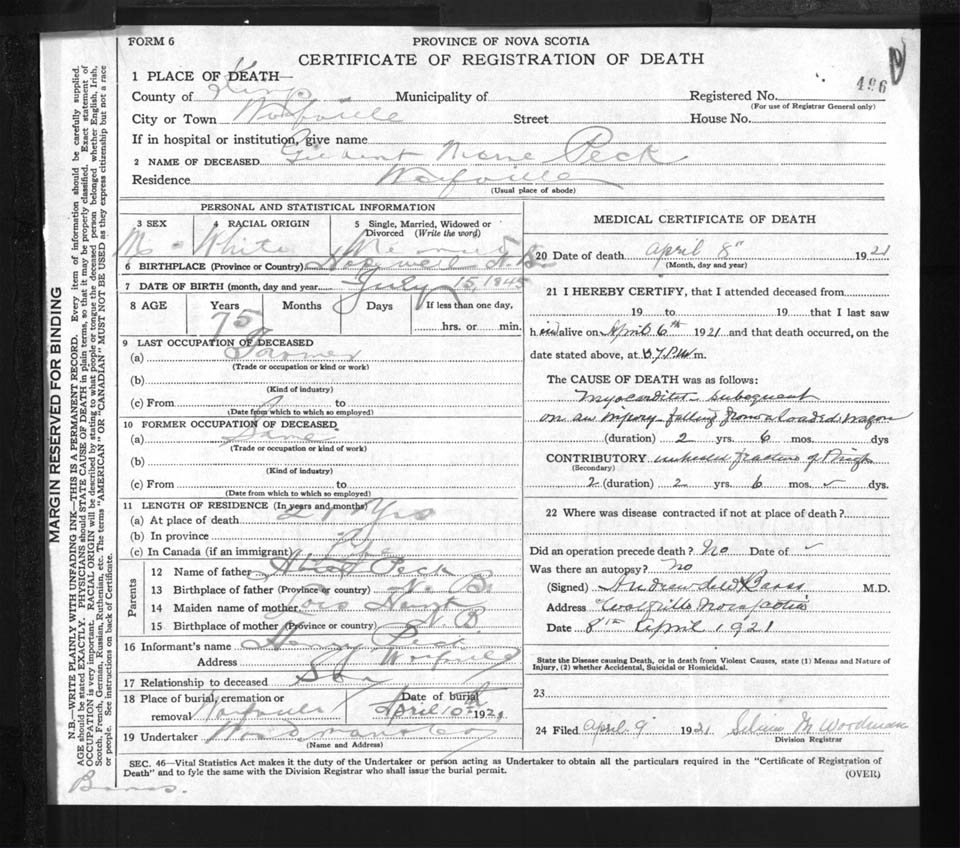 FORM 6
PROVINCE OF NOVA SCOTIA
CERTIFICATE OF REGISTRATION OF DEATH
496
1 PLACE OF DEATH—
County of Kings Municipality of Registered No.
(For use of Registrar General only)
City or Town Wolfville Street House No.
If in hospital or institution, give name
2 NAME OF DECEASED Gilbert Peck
Residence Wolfville
(Usual place of abode)
PERSONAL AND STATISTICAL INFORMATION
3 SEX 4 RACIAL ORIGIN 5 Single, Married, Widowed or Divorced (Write the word)
M White
6 BIRTHPLACE (Province or Country) Hopewell N.B.
7 DATE OF BIRTH (month, day and year) July 15, 1845
8 AGE Years Months Days If less than one day,
75 hrs. or min.
9 LAST OCCUPATION OF DECEASED
(a) Farmer
(Trade or occupation or kind or work)
(b)
(Kind of industry)
(c) From to
(Date from which to which so employed)
10 FORMER OCCUPATION OF DECEASED
(a) Same
(Trade or occupation or kind of work)
(b)
(Kind of industry)
(c) From to
(Date from which to which so employed)
11 LENGTH OF RESIDENCE (In years and months)
(a) At place of death 21 Yrs
(b) In province
(c) In Canada (if an immigrant)
Parents
12 Name of father Peck
13 Birthplace of father (Province or country) N. B.
14 Maiden name of mother Lois
15 Birthplace of mother (Province or country) N. B.
16 Informant's name Henry Peck
Address Wolfville
17 Relationship to deceased Son
18 Place of burial, cremation or removal Wolfville Date of burial April 10th 1921
19 Undertaker Woodman & Co
(Name and Address)
MEDICAL CERTIFICATE OF DEATH
20 Date of death April 8" 1921
(Month, day and year)
21 I HEREBY CERTIFY, that I attended deceased from
19 to 19 that I last saw
h im alive on April 6th 1921 and that death occurred, on the
date stated above, at m.
The CAUSE OF DEATH was as follows:
Myocarditis subsequent
on an injury falling from a loaded wagon
(duration) 2 yrs. 6 mos. dys
CONTRIBUTORY unhealed fracture of
(Secondary)
2 (duration) 2 yrs. 6 mos. dys.
22 Where was disease contracted if not at place of death?
Did an operation precede death? No Date of
Was there an autopsy? no
(Signed) Andrew deW Barss M.D.
Address Wolfville Nova Scotia
Date 8th April 1921
State the Disease causing Death, or in death from Violent Causes, state (1) Means and Nature of
Injury, (2) whether Accidental, Suicidal or Homicidal.
23
24 Filed April 9 1921 Woodman
Division Registrar
SEC. 46—Vital Statistics Act makes it the duty of the Undertaker or person acting as Undertaker to obtain all the particulars required in the "Certificate of Registration of
Death" and to fyle the same with the Division Registrar who shall issue the burial permit.
(OVER)
MARGIN RESERVED FOR BINDING
N.B.—WRITE PLAINLY WITH UNFADING INK—THIS IS A PERMANENT RECORD. Every item of information should be carefully supplied.
AGE should be stated EXACTLY. PHYSICIANS should STATE CAUSE OF DEATH in plain terms, so that it may be properly classified. Exact statement of
OCCUPATION is very important. RACIAL ORIGIN will be described by stating to what people or tongue the deceased person belonged whether English, Irish,
Scotch, French, German, Russian, Ruthenian, etc. The terms "AMERICAN" OR "CANADIAN" MUST NOT BE USED as they express citizenship but not a race
or people. See instructions on back of Certificate.
Barss.